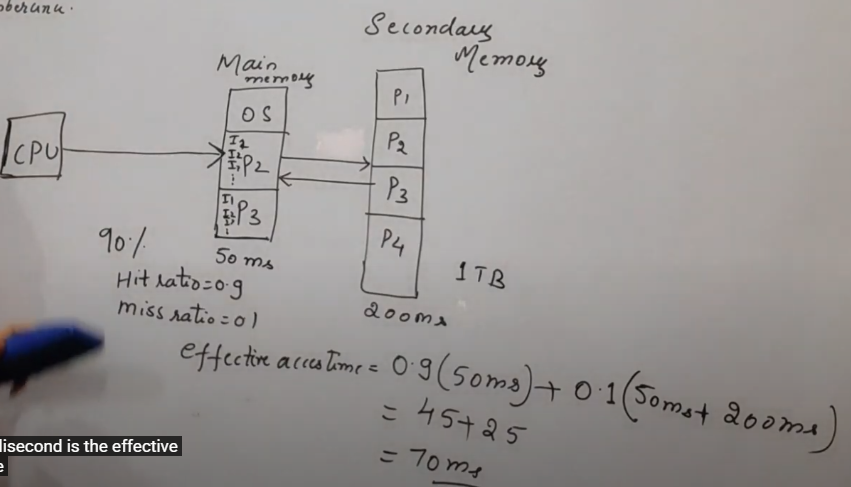 Secondary
Memory
Main
memory
CPU
OS
I2
I2
I1
P2
I1
I2
P3
50 ms
P1
P2
P3
P4
1 TB
200ms
90%
Hit ratio=0.9
miss ratio=01
effective acces Time = 0.9(50ms)+ 0.1(50ms+ 200ms)
= 45+25
= 70ms
lisecond is the effective
e